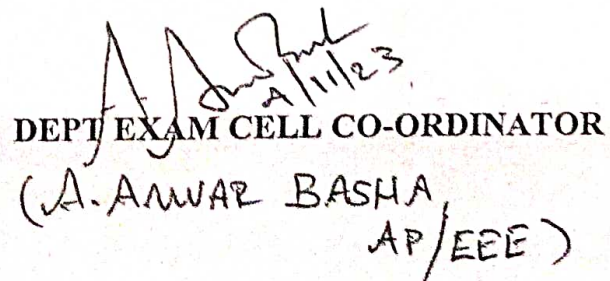 4/11/23
DEPT EXAM CELL CO-ORDINATOR
(A. ANWAR BASHA,
AP/EEE)